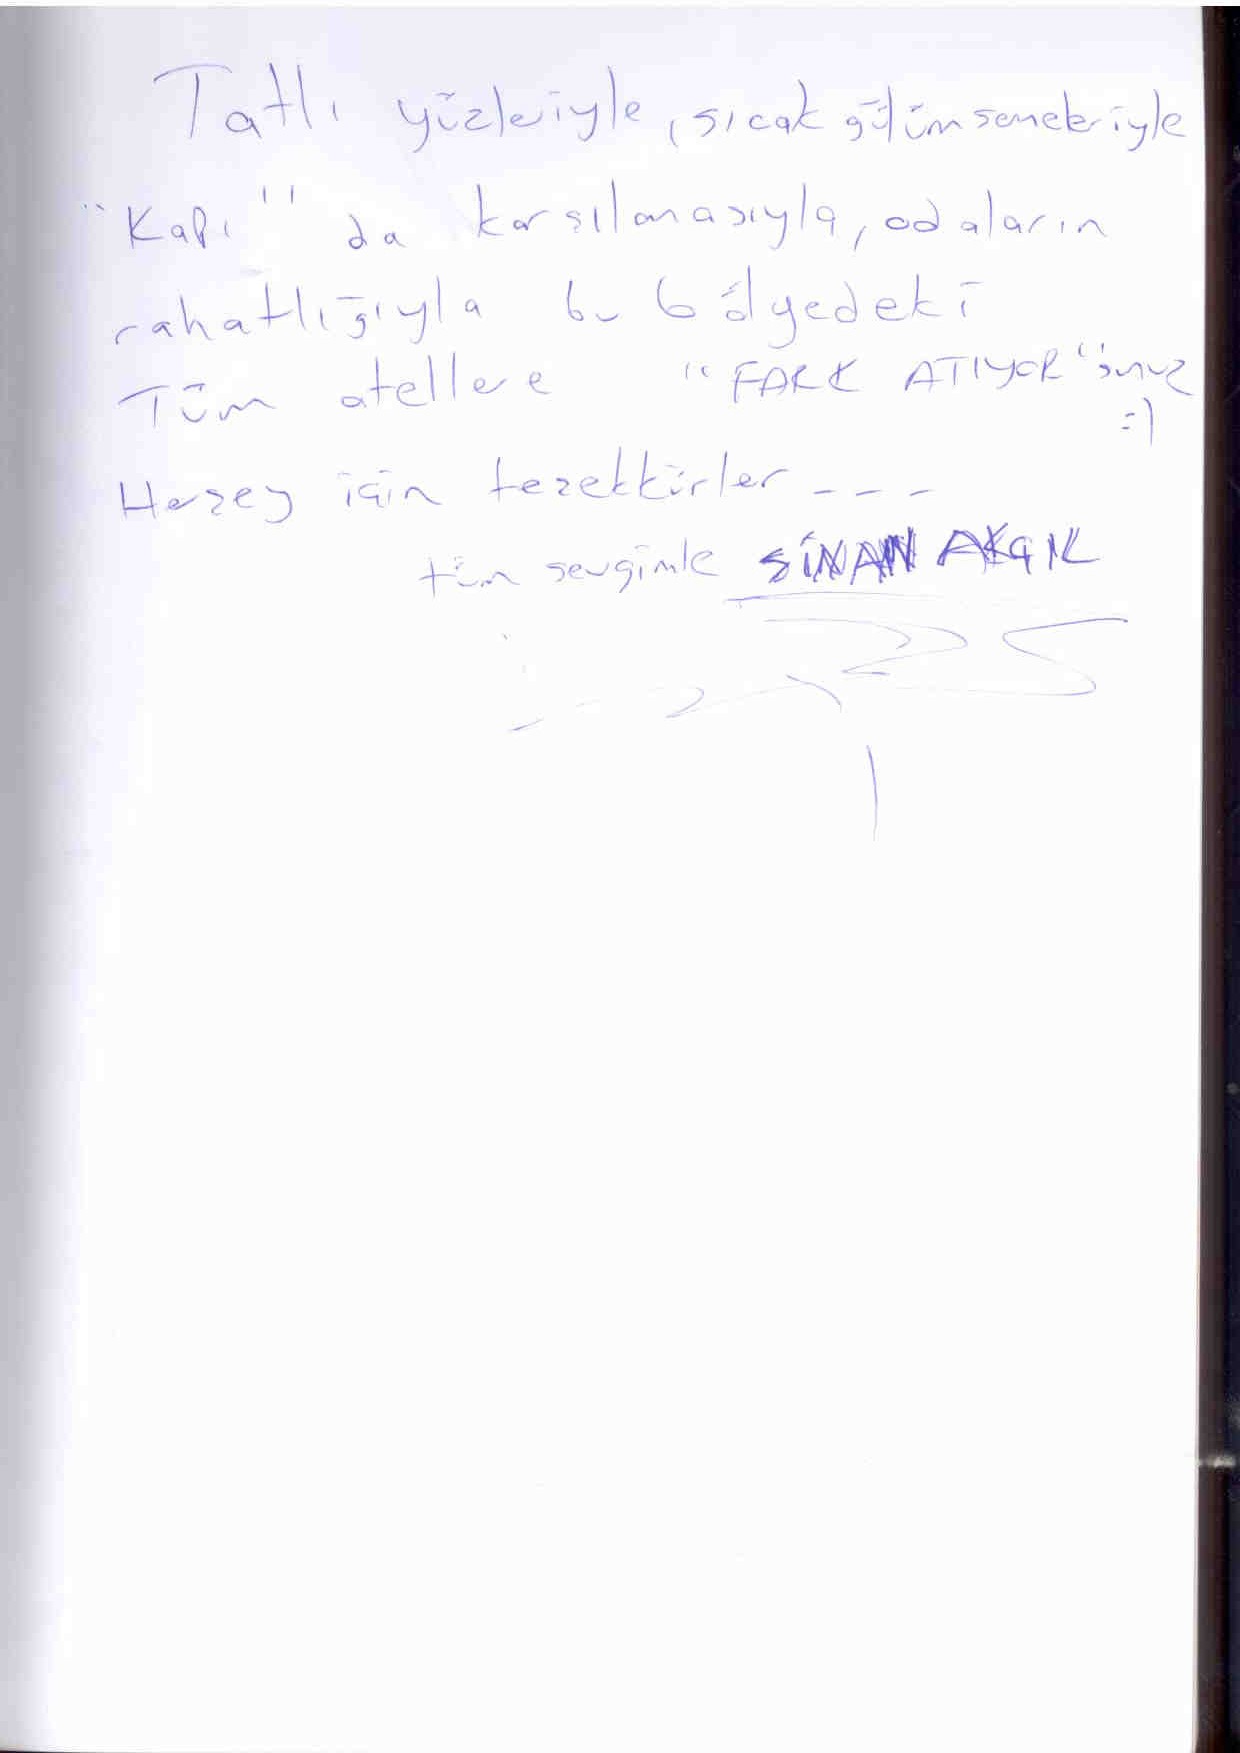 Tatlı yüzleriyle, sıcak gülümsemeleriyle
"Kapı" da karşılamasıyla, odaların
rahatlığıyla bu bölgedeki
Tüm otellere "FARK ATIYOR"sunuz
:)
Herşey için teşekkürler ---
tüm sevgimle SİNAN